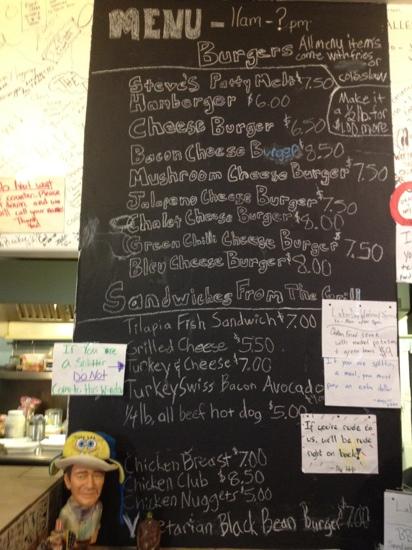 MENU - 11am - ? pm
Burgers
All menu items
come with fries
or
coleslaw
Steve's Patty Melt $7.50
Hamberger $6.00
Cheese Burger $6.50
Make it
a 1/2 lb. for
$1.00 more
Bacon Cheese Burger $8.50
Mushroom Cheese Burger $7.50
Jalapeno Cheese Burger $7.50
Chalet Cheese Burger $8.00
Green Chilli Cheese Burger $7.50
Bleu Cheese Burger $8.00
Sandwiches From The Grill
Tilapia Fish Sandwich $7.00
Grilled Cheese $5.50
Turkey & Cheese $7.00
Turkey Swiss Bacon Avocado
1/4 lb, all beef hot dog $5.00
Chicken Breast $7.00
Chicken Club $8.50
Chicken Nuggets $5.00
Vegetarian Black Bean Burger $7.00
If You are
a Splitter
Do Not
Come to this Window
If you are splitting
a meal, you must
pay an extra dollar
If you're rude to
us, we'll be rude
right on back!
Do Not wait